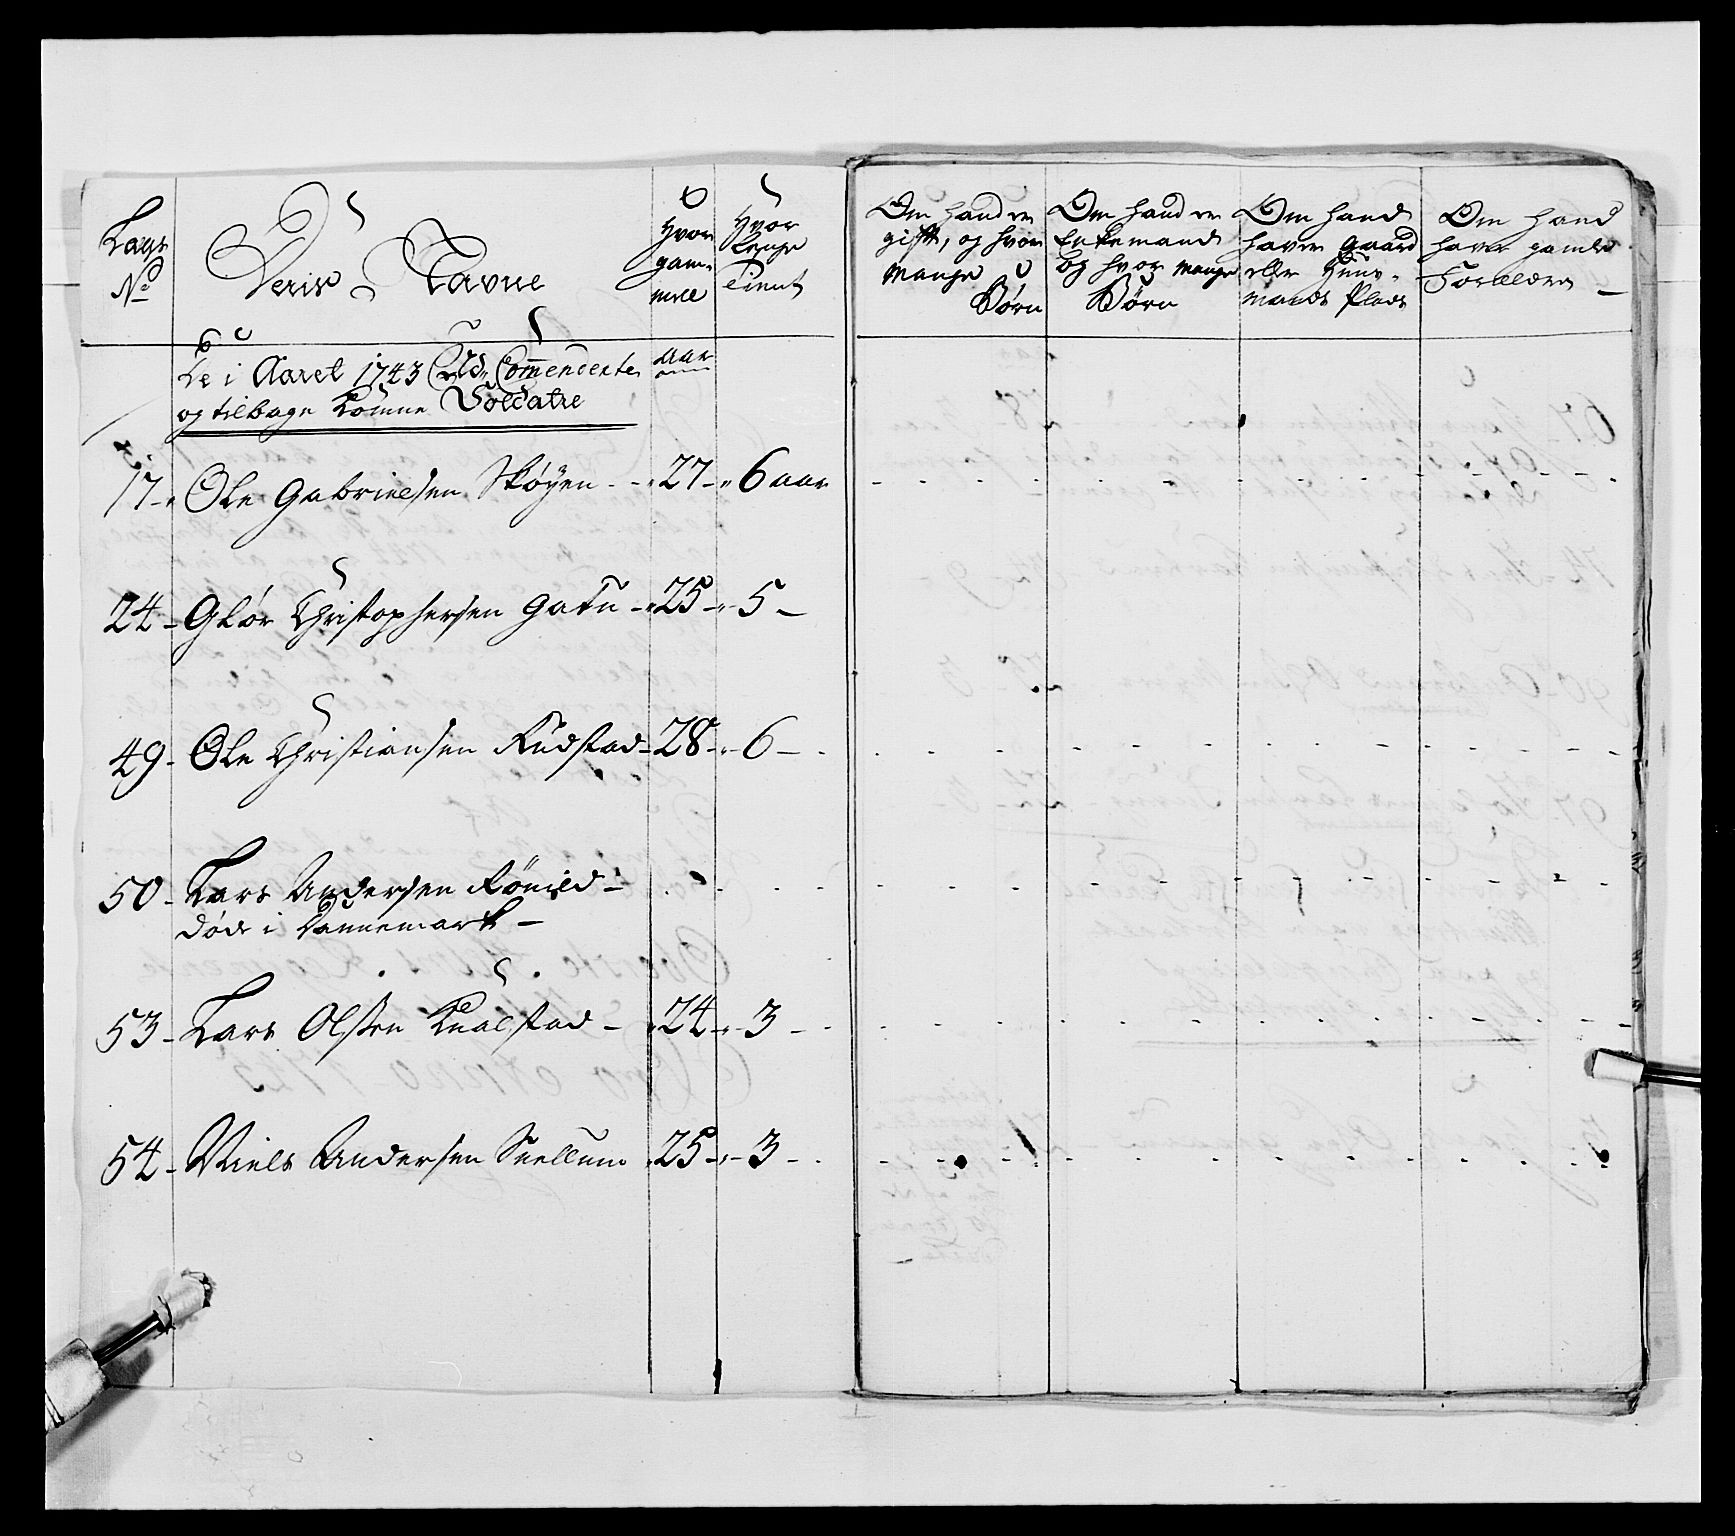 Lægs No
Deris Navne
Hvor gam- mell
Hvor Lenge Tient
Om hand er gift, og hvor mange Børn
Om hand er Enkemand og hvor mange Børn
Om hand haver Gaard eller Huus- mands Plads
Om hand haver gamle Forældre
De i Aaret 1743 Ud Commenderte
og tilbage komne Soldatre
aar
17 - Ole Gabrielsen Skøyen - 27 - 6 aar
24 - Glør Christophersen - 25 - 5 -
49 - Ole Christiansen Rudstad - 28 - 6 -
50 - Lars Andersen
døde i Dannemark -
53 - Lars Olsen - 24 - 3 -
54 - Niels Andersen - 25 - 3 -